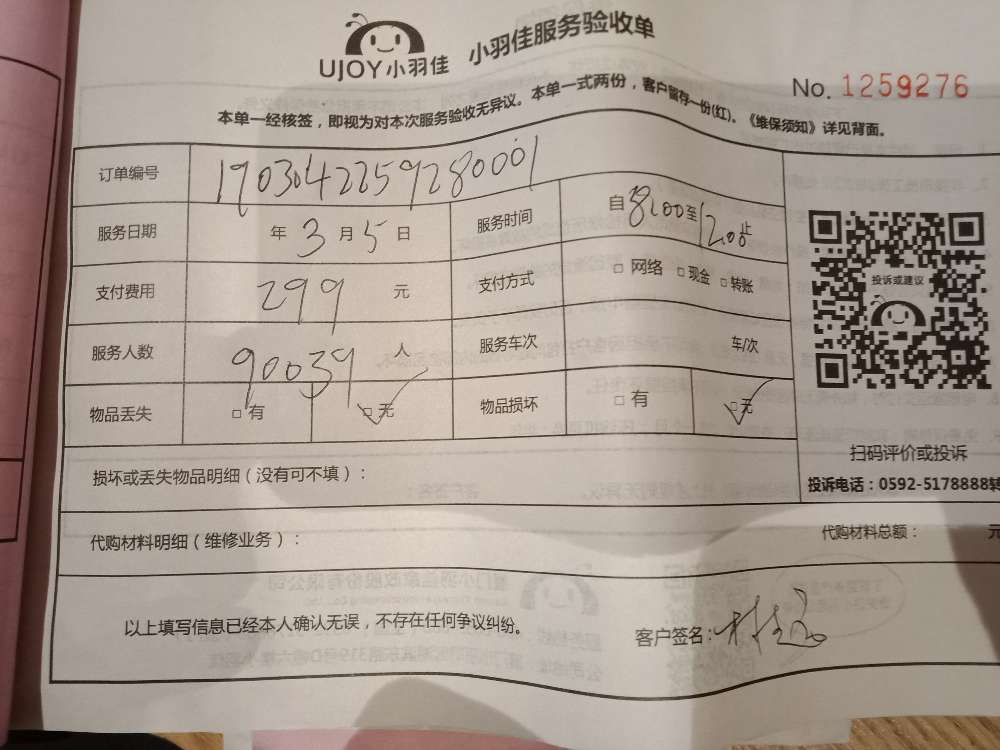 UJOY小羽佳 小羽佳服务验收单
No. 1259276
本单一经核签，即视为对本次服务验收无异议。本单一式两份，客户留存一份(红)。《维保须知》详见背面。
订单编号 1903042259280001
服务日期 年 3 月 5 日 服务时间 自 8:00 至 12:00 止
支付费用 299 元 支付方式 □ 网络 □ 现金 □ 转账
投诉或建议
服务人数 90039 人 服务车次 车/次
物品丢失 □ 有 □ 无 物品损坏 □ 有 □ 无
扫码评价或投诉
损坏或丢失物品明细（没有可不填）：
投诉电话：0592-5178888转
代购材料明细（维修业务）： 代购材料总额： 元
以上填写信息已经本人确认无误，不存在任何争议纠纷。 客户签名：